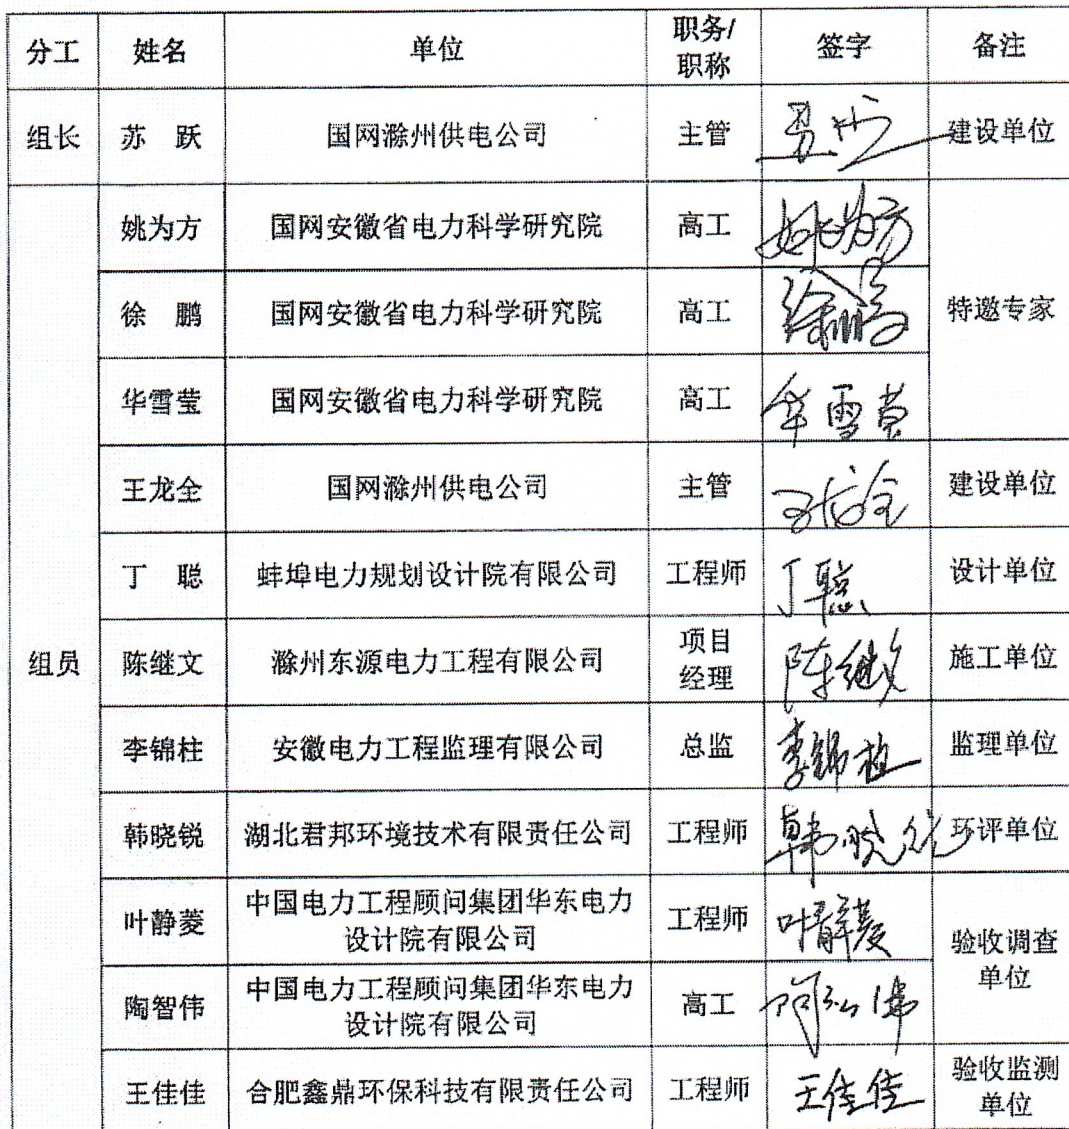 分工 姓名 单位 职务/职称 签字 备注
组长 苏 跃 国网滁州供电公司 主管 建设单位
组员 姚为方 国网安徽省电力科学研究院 高工 姚为方 特邀专家
徐 鹏 国网安徽省电力科学研究院 高工 徐鹏
华雪莹 国网安徽省电力科学研究院 高工 华雪莹
王龙全 国网滁州供电公司 主管 王龙全 建设单位
丁 聪 蚌埠电力规划设计院有限公司 工程师 丁聪 设计单位
陈继文 滁州东源电力工程有限公司 项目经理 陈继文 施工单位
李锦柱 安徽电力工程监理有限公司 总监 李锦柱 监理单位
韩晓锐 湖北君邦环境技术有限责任公司 工程师 韩晓锐 环评单位
叶静菱 中国电力工程顾问集团华东电力设计院有限公司 工程师 叶静菱 验收调查单位
陶智伟 中国电力工程顾问集团华东电力设计院有限公司 高工
王佳佳 合肥鑫鼎环保科技有限责任公司 工程师 王佳佳 验收监测单位